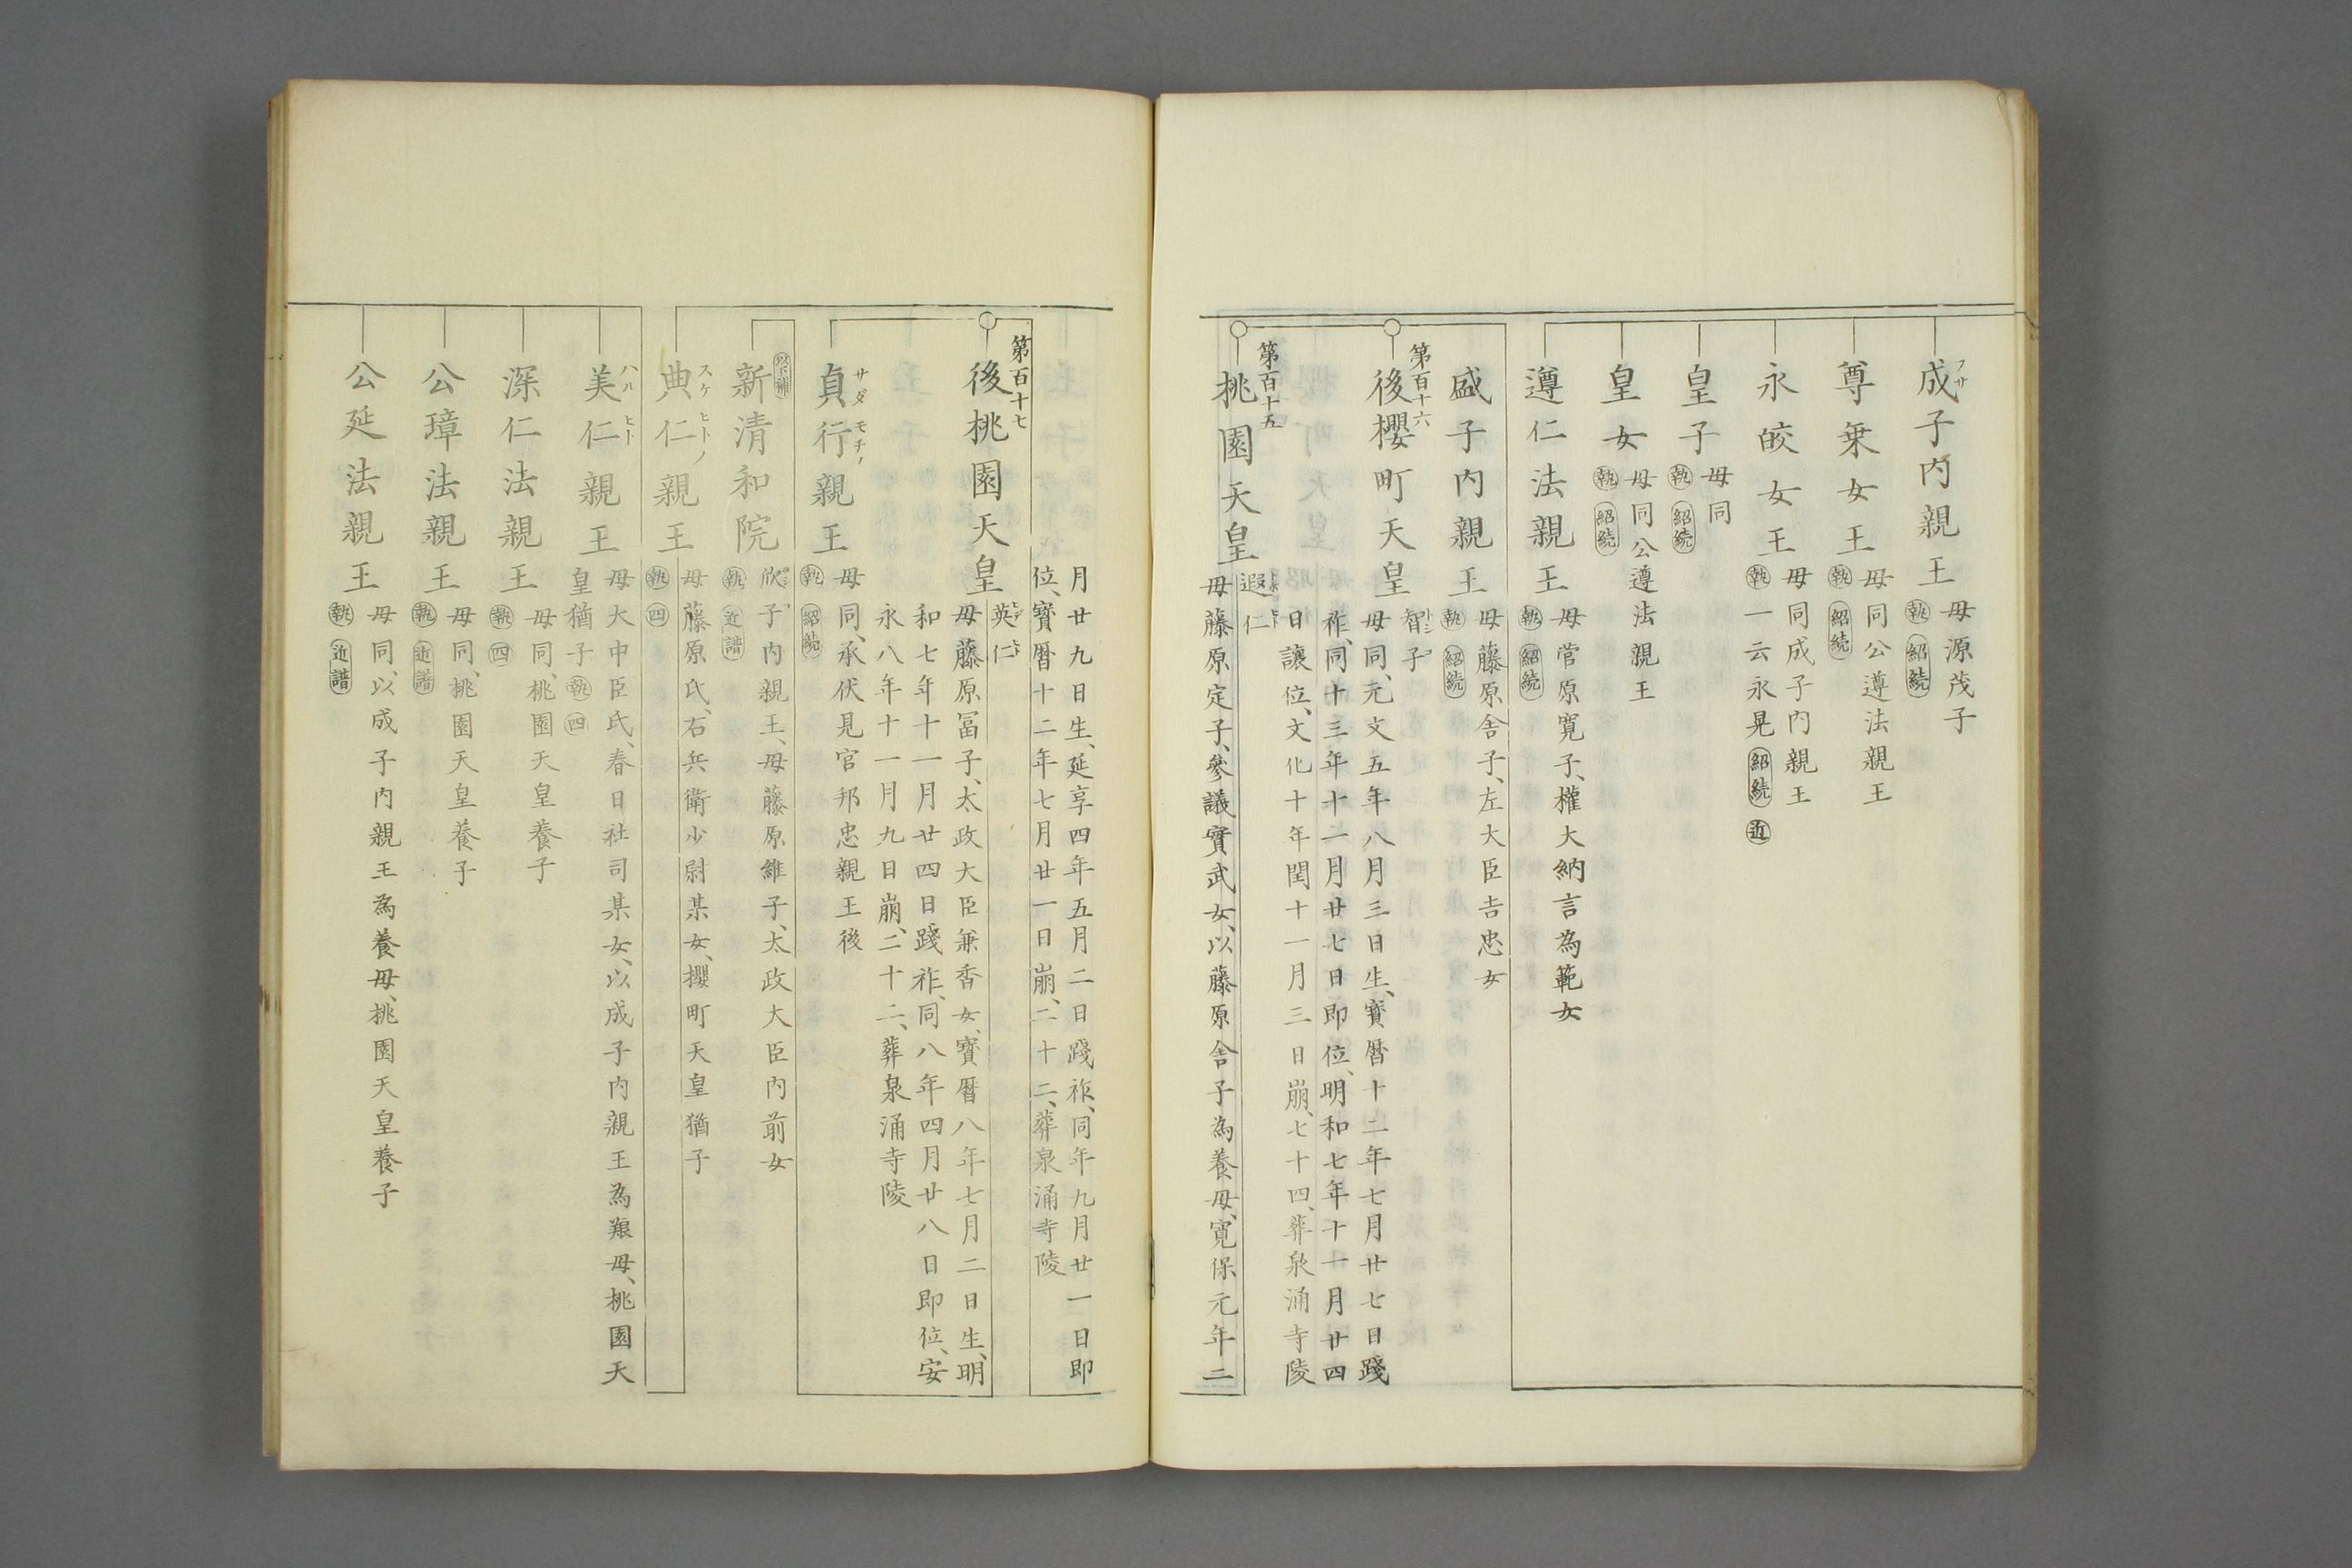 成子内親王
フサ
母源茂子
執 紹続
尊乗女王
母同公遵法親王
執 紹続
永皎女王
母同成子内親王
執 一云永晃 紹続 近
皇子
母同
執 紹続
皇女
母同公遵法親王
執 紹続
遵仁法親王
母菅原寛子、権大納言為範女
執 紹続
盛子内親王
母藤原舎子、左大臣吉忠女
執 紹続
第百十六
後櫻町天皇
智子
母同、元文五年八月三日生、寳暦十二年七月廿七日踐
祚、同十三年十一月廿七日即位、明和七年十一月廿四
日讓位、文化十年閏十一月三日崩、七十四、葬泉涌寺陵
第百十五
桃園天皇
遐仁
母藤原定子、參議實武女、以藤原舎子為養母、寛保元年二
月廿九日生、延享四年五月二日踐祚、同年九月廿一日即
位、寳暦十二年七月廿一日崩、二十二、葬泉涌寺陵
第百十七
後桃園天皇
英仁
母藤原冨子、太政大臣兼香女、寳暦八年七月二日生、明
和七年十一月廿四日踐祚、同八年四月廿八日即位、安
永八年十一月九日崩、二十二、葬泉涌寺陵
貞行親王
サダモチノ
母同、承伏見宮邦忠親王後
執 紹続
以下補
新清和院
欣子内親王、母藤原維子、太政大臣内前女
執 近譜
典仁親王
スケヒトノ
母藤原氏、石兵衛少尉某女、櫻町天皇猶子
執 四
美仁親王
ハルヒト
母大中臣氏、春日社司某女、以成子内親王為艱母、桃園天
皇猶子 執 四
深仁法親王
母同、桃園天皇養子
執 四
公璋法親王
母同、桃園天皇養子
執 近譜
公延法親王
母同、以成子内親王為養母、桃園天皇養子
執 近譜